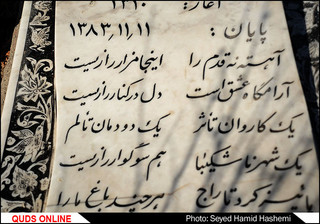 آغاز: ۱۳۱۰
پایان: ۱۳۸۳,۱۱,۱۱
آهسته نه قدم را اینجا مزار راز ست
آرامگاه عشق است دل در کنار راز ست
یک کاروان تأثر یک دودمان تألم
یک شهر ناشکیبا هم سوگوار راز ست
تاراج هر چند باغ ما را
QUDS ONLINE
Photo: Seyed Hamid Hashemi